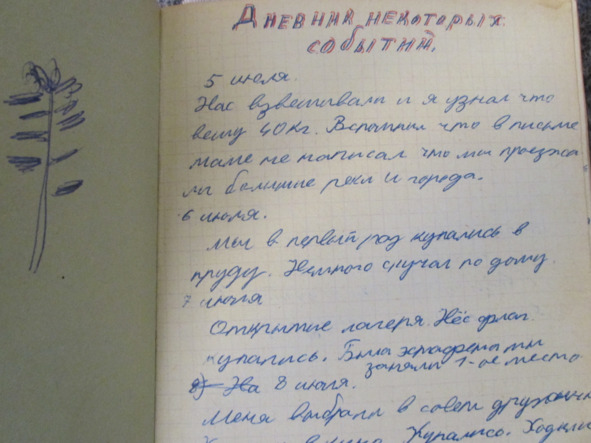 Дневник некоторых
событий.
5 июля.
Нас взвешивали и я узнал что
вешу 40 кг. Вспомнил что в письме
маме не написал что мы проезжа
ли большие реки и города.
6 июля.
Мы в первый раз купались в
пруду. Немного скучал по дому.
7 июля
Открытие лагеря. Нёс флаг.
купались. Была эстафета мы
заняли 1-ое место
8) На 8 июля.
Меня выбрали в совет
кино. Купались. Ходили